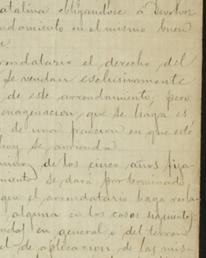 atalina obligandose a devolver
ndamiento en el mismo buen
rendatario el derecho del
se vendan esclusivamente
de este arrendamiento, pero
enagenacion, que se haga es
de una fraccion en que esté
hoy se arrienda
mino de los cinco años fija
miento se dará por terminado
que el arrendatario haga
alguna en los casos siguiente
en general o del terreno
el de aplicacion de las mis